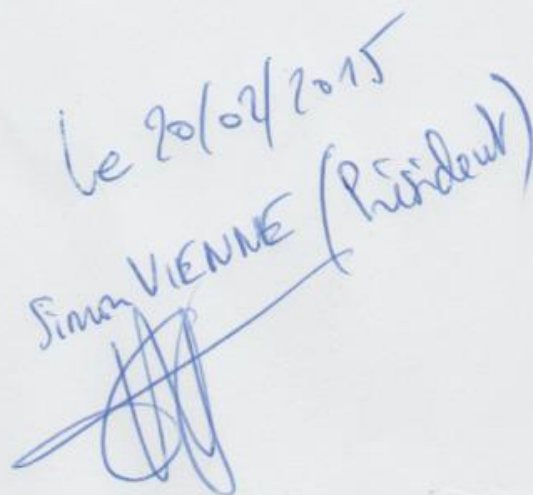 Le 20/02/2015
Simon VIENNE (Président)